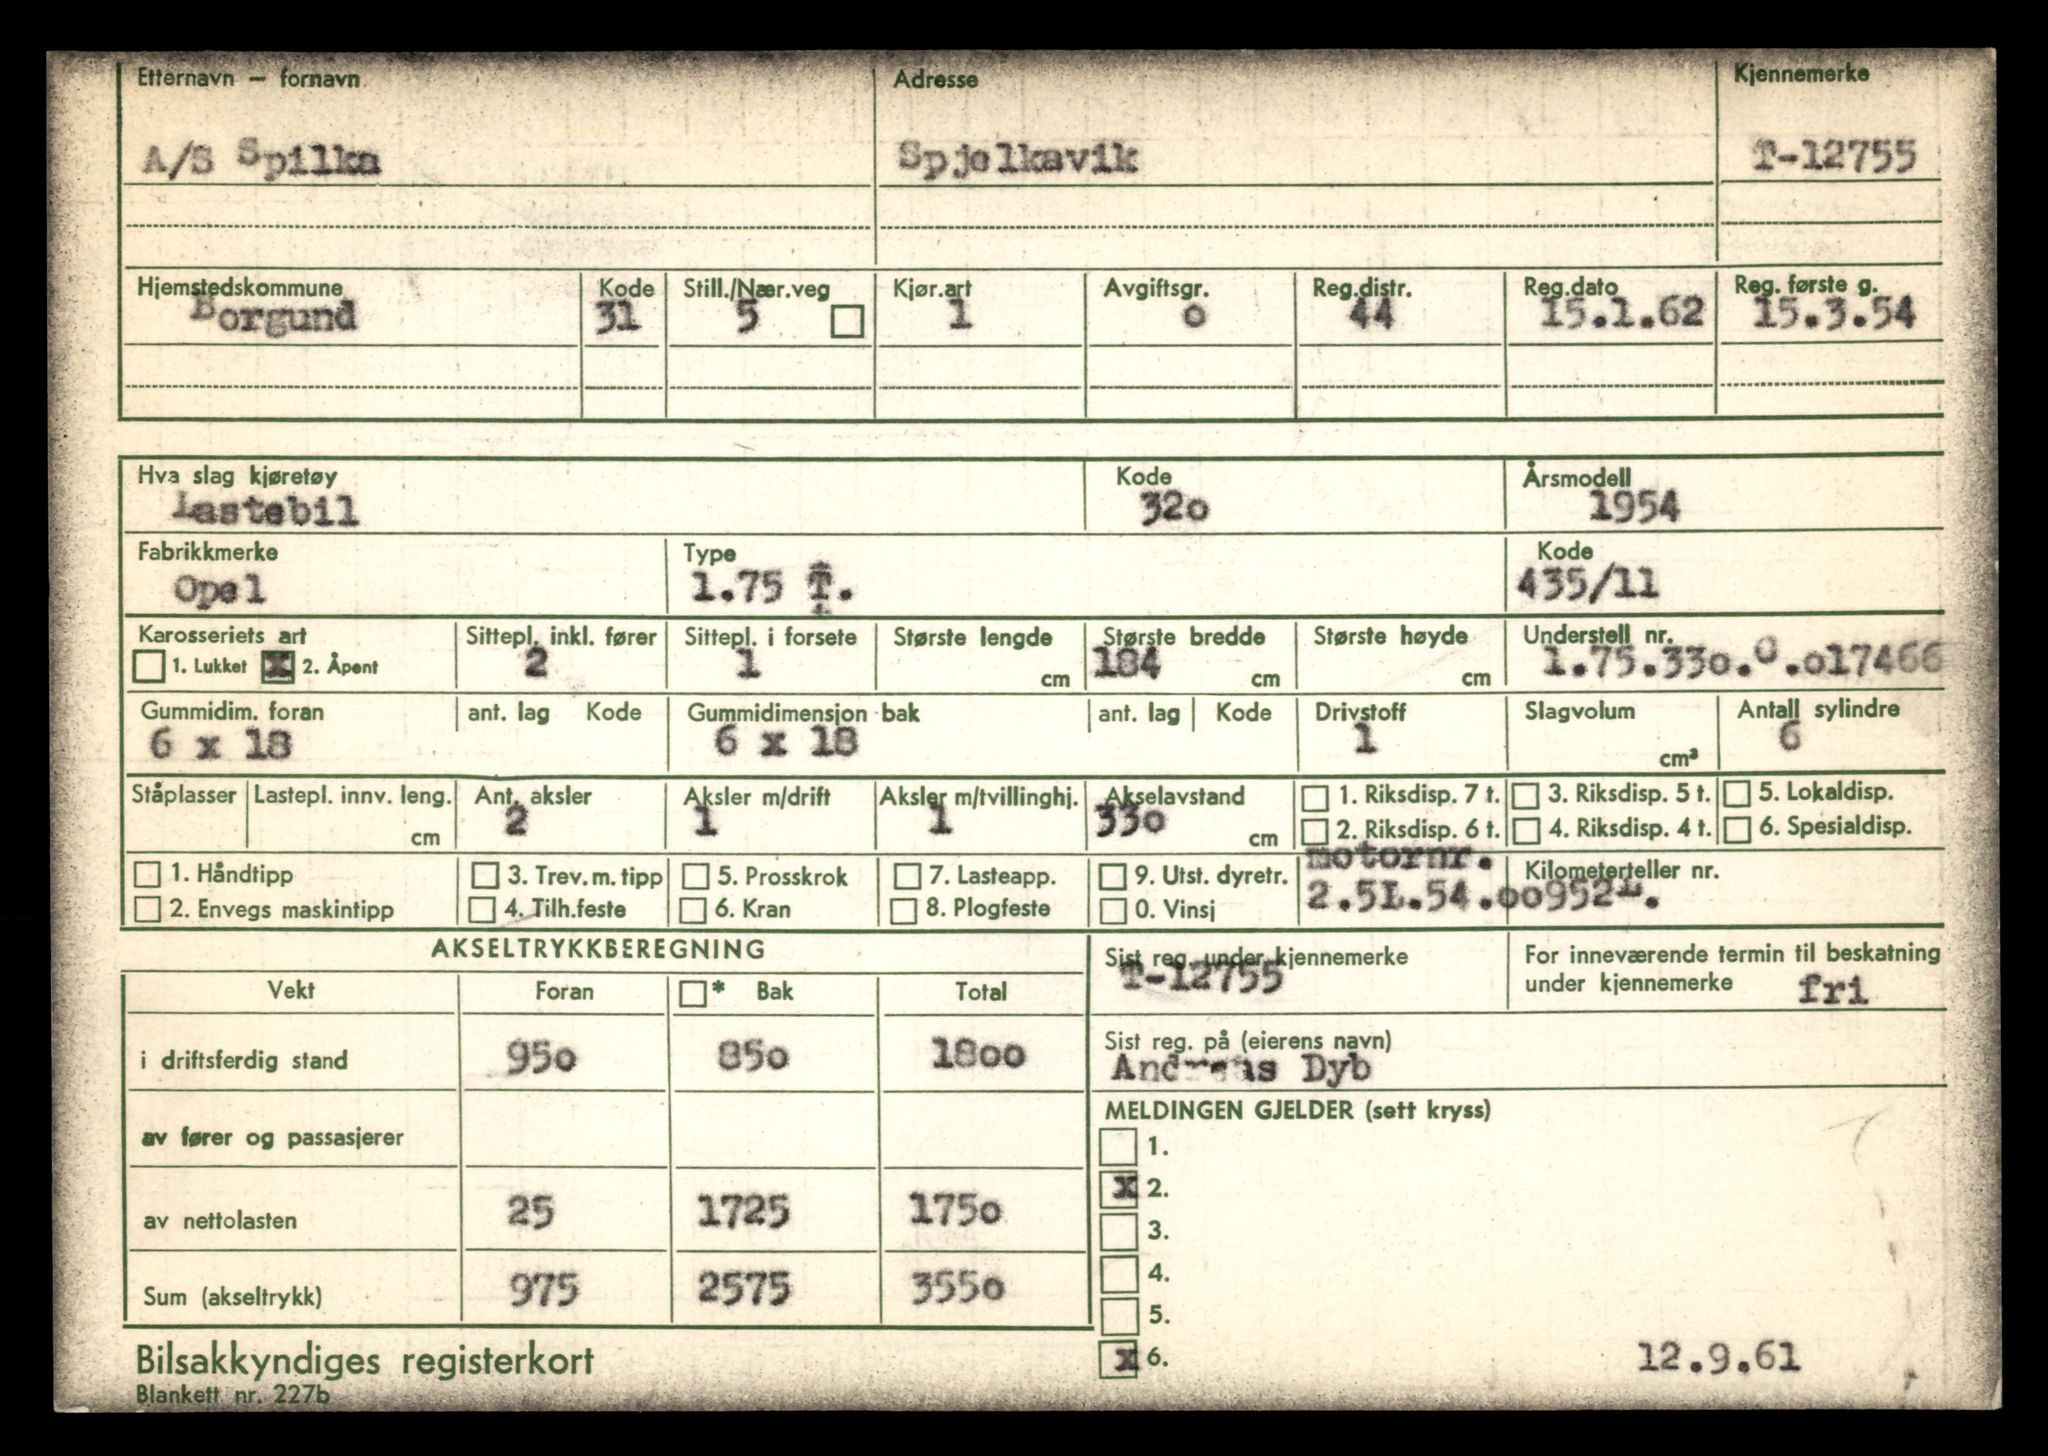 Etternavn — fornavn Adresse Kjennemerke
A/S Spilka Spjelkavik T-12755
Hjemstedskommune Kode Still./Nær.veg Kjør.art Avgiftsgr. Reg.distr. Reg.dato Reg. første g.
Borgund 31 5 1 o 44 15.1.62 15.3.54
Hva slag kjøretøy Kode Årsmodell
Lastebil 32o 1954
Fabrikkmerke Type Kode
Opel 1.75 T. 435/11
Karosseriets art Sittepl. inkl. fører Sittepl. i forsete Største lengde Største bredde Største høyde Understell nr.
1. Lukket x 2. Åpent 2 1 cm 184 cm cm 1.75.33o.O.o17466
Gummidim. foran ant. lag Kode Gummidimensjon bak ant. lag Kode Drivstoff Slagvolum Antall sylindre
6 x 18 6 x 18 1 cm³ 6
Ståplasser Lastepl. innv. leng. Ant. aksler Aksler m/drift Aksler m/tvillinghj. Akselavstand 1. Riksdisp. 7 t. 3. Riksdisp. 5 t. 5. Lokaldisp.
cm 2 1 1 33o cm 2. Riksdisp. 6 t. 4. Riksdisp. 4 t. 6. Spesialdisp.
1. Håndtipp 3. Trev. m. tipp 5. Prosskrok 7. Lasteapp. 9. Utst. dyretr. motornr. Kilometerteller nr.
2. Envegs maskintipp 4. Tilh.feste 6. Kran 8. Plogfeste 0. Vinsj 2.5L.54.oo952L.
AKSELTRYKKBEREGNING Sist reg. under kjennemerke For inneværende termin til beskatning
T-12755 under kjennemerke fri
Vekt Foran * Bak Total
Sist reg. på (eierens navn)
i driftsferdig stand 95o 85o 18oo Andreas Dyb
MELDINGEN GJELDER (sett kryss)
av fører og passasjerer 1.
x 2.
av nettolasten 25 1725 175o 3.
4.
Sum (akseltrykk) 975 2575 355o 5.
Bilsakkyndiges registerkort x 6. 12.9.61
Blankett nr. 227b